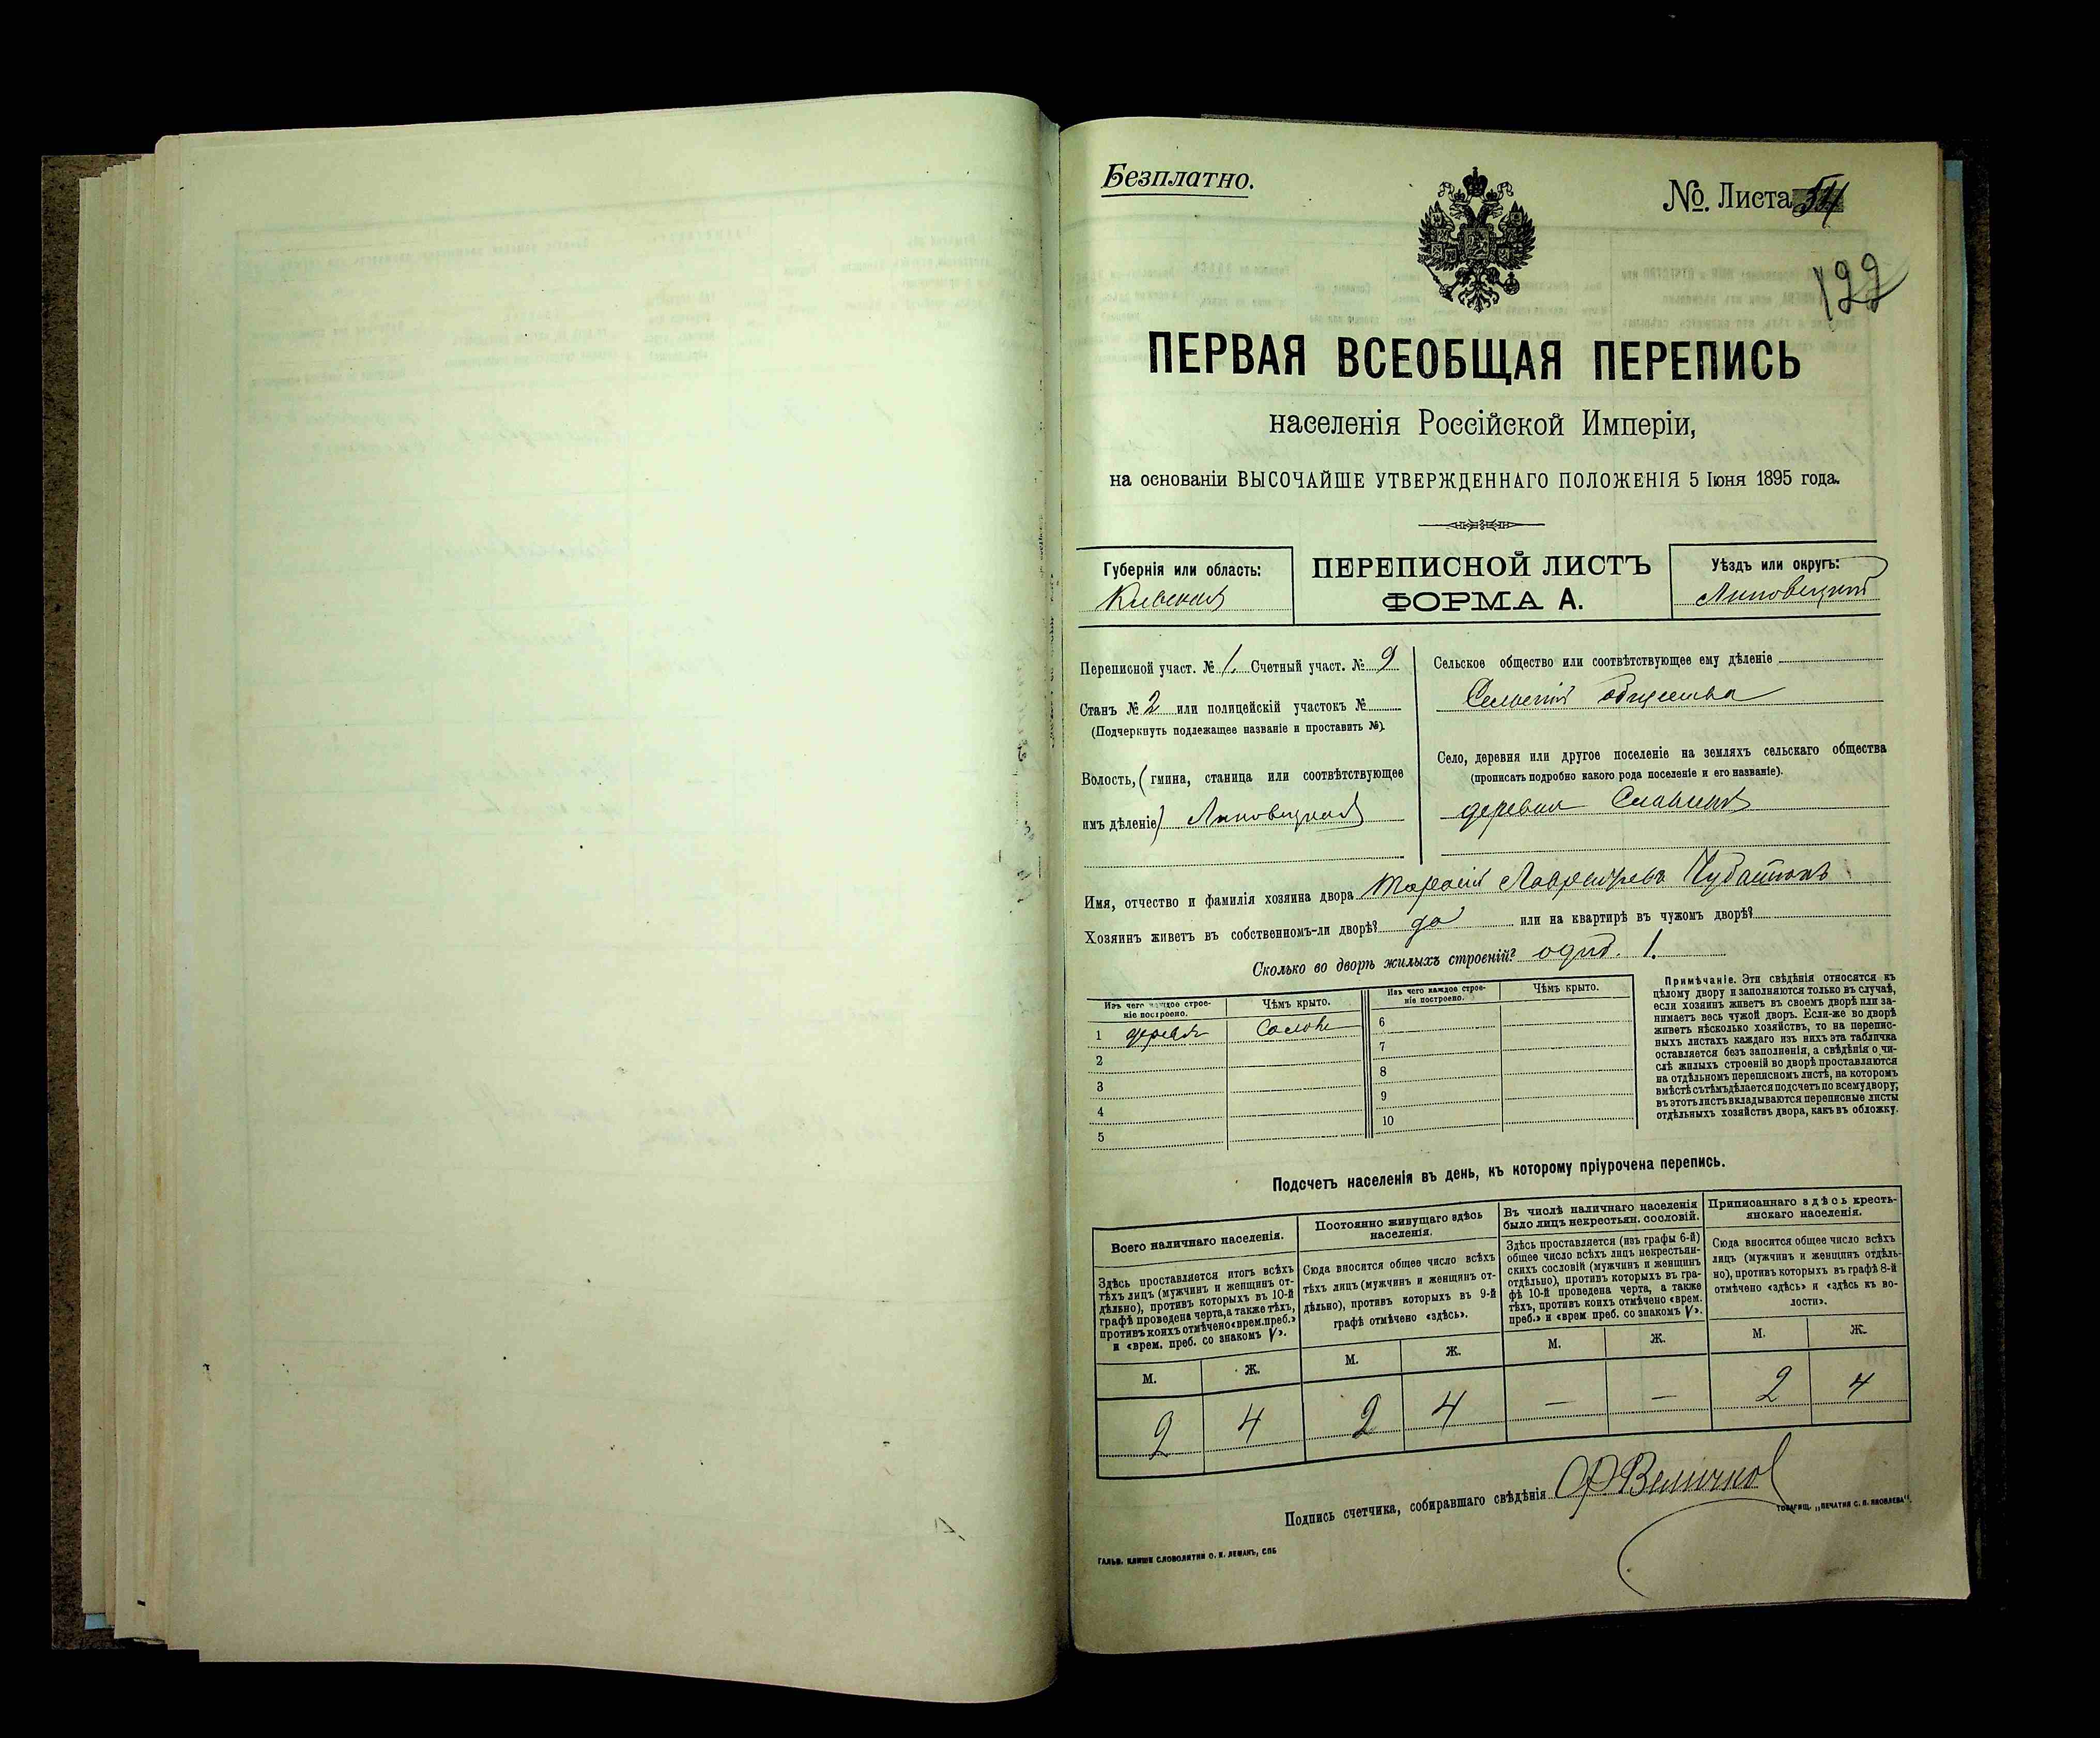 Безплатно.
№. Листа 54
122
ПЕРВАЯ ВСЕОБЩАЯ ПЕРЕПИСЬ
населенія Россійской Имперіи,
на основаніи ВЫСОЧАЙШЕ УТВЕРЖДЕННАГО ПОЛОЖЕНІЯ 5 Іюня 1895 года.
Губернія или область:
Кіевская
ПЕРЕПИСНОЙ ЛИСТЪ
ФОРМА А.
Уѣздъ или округъ:
Липовецкій
Переписной участ. № 1. Счетный участ. № 9
Станъ № 2 или полицейскій участокъ №
(Подчеркнуть подлежащее названіе и проставить №).
Волость, (гмина, станица или соотвѣтствующее
имъ дѣленіе) Липовецкая
Сельское общество или соотвѣтствующее ему дѣленіе
общества
Село, деревня или другое поселеніе на земляхъ сельскаго общества
(прописать подробно какого рода поселеніе и его названіе).
деревня
Имя, отчество и фамилія хозяина двора
Хозяинъ живетъ въ собственномъ-ли дворѣ? да или на квартирѣ въ чужомъ дворѣ?
Сколько во дворѣ жилыхъ строеній? 1.
Изъ чего каждое строе-
ніе построено.
Чѣмъ крыто.
Изъ чего каждое строе-
ніе построено.
Чѣмъ крыто.
1
6
2
7
3
8
4
9
5
10
Примѣчаніе. Эти свѣдѣнія относятся къ
цѣлому двору и заполняются только въ случаѣ,
если хозяинъ живетъ въ своемъ дворѣ или за-
нимаетъ весь чужой дворъ. Если-же во дворѣ
живетъ нѣсколько хозяйствъ, то на перепис-
ныхъ листахъ каждаго изъ нихъ эта табличка
оставляется безъ заполненія, а свѣдѣнія о чи-
слѣ жилыхъ строеній во дворѣ проставляются
на отдѣльномъ переписномъ листѣ, на которомъ
вмѣстѣ съ тѣмъ дѣлается подсчетъ по всему двору;
въ этотъ листъ вкладываются переписные листы
отдѣльныхъ хозяйствъ двора, какъ въ обложку.
Подсчетъ населенія въ день, къ которому пріурочена перепись.
Всего наличнаго населенія.
Здѣсь проставляется итогъ всѣхъ
тѣхъ лицъ (мужчинъ и женщинъ от-
дѣльно), противъ которыхъ въ 10-й
графѣ проведена черта, а также тѣхъ,
противъ коихъ отмѣчено «врем. преб.»
и «врем. преб. со знакомъ V».
Постоянно живущаго здѣсь
населенія.
Сюда вносится общее число всѣхъ
тѣхъ лицъ (мужчинъ и женщинъ от-
дѣльно), противъ которыхъ въ 9-й
графѣ отмѣчено «здѣсь».
Въ числѣ наличнаго населенія
было лицъ некрестьян. сословій.
Здѣсь проставляется (изъ графы 6-й)
общее число всѣхъ лицъ некрестьян-
скихъ сословій (мужчинъ и женщинъ
отдѣльно), противъ которыхъ въ гра-
фѣ 10-й проведена черта, а также
тѣхъ, противъ коихъ отмѣчено «врем.
преб.» и «врем преб. со знакомъ V».
Приписаннаго здѣсь кресть-
янскаго населенія.
Сюда вносится общее число всѣхъ
лицъ (мужчинъ и женщинъ отдѣль-
но), противъ которыхъ въ графѣ 8-й
отмѣчено «здѣсь» и «здѣсь къ во-
лости».
М. Ж. М. Ж. М. Ж. М. Ж.
2 4 2 4 — — 2 4
Подпись счетчика, собиравшаго свѣдѣнія Величко
ТОВАРИЩ. „ПЕЧАТНЯ С. П. ЯКОВЛЕВА".
ГАЛЬВ. КЛИШЕ СЛОВОЛИТНИ О. И. ЛЕМАНЪ, СПБ